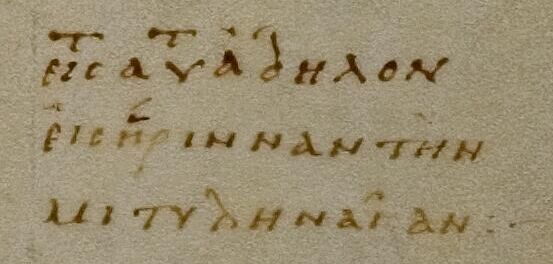 εἰς τ αυτ ἄδηλον
εἰς ἤρινναν τὴν
μιτυληναίαν :-